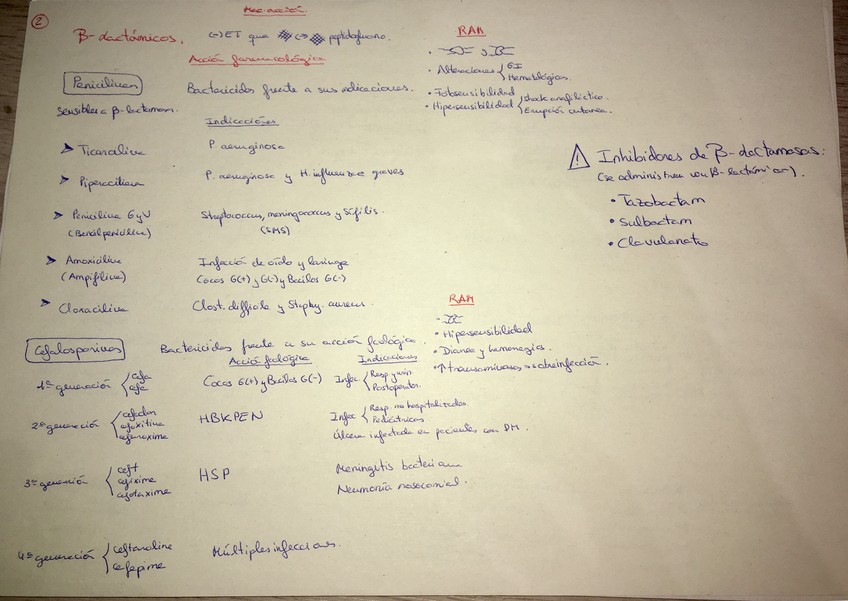 2
Mec. acción
β-lactámicos.
(-) ET que peptidoglucano.
Acción farmacológica
RAM
Alteraciones { GI
Hematológicas.
Fotosensibilidad
Hipersensibilidad { shock anafiláctico.
Erupción cutánea.
Penicilinas
Bactericidas frente a sus indicaciones.
Sensibles a β-lactamasas.
Indicaciones
Ticarcilina
P aeruginosa
Piperacilina
P. aeruginosa y H. influenzae graves
Penicilina G y V
(Bencilpenicilina)
Streptococcus, meningococcus y Sífilis.
(SMS)
Amoxicilina
(Ampicilina)
Infección de oído y laringe
Cocos G(+) y G(-) y Bacilos G(-)
Cloxacilina
Clost. difficile y Staphy. aureus.
⚠ Inhibidores de β-lactamasas:
(se administran con β-lactámicos).
• Tazobactam
• Sulbactam
• Clavulanato
RAM
Hipersensibilidad
Diarrea y hemorragias.
↑ transaminasas → sobreinfección.
Cefalosporinas
Bactericidas frente a su acción fcológica.
Acción fcológica
Indicaciones
1ª generación
Cocos G(+) y Bacilos G(-)
Infec { Resp y urin
Postoperator.
2ª generación { cefaclor
cefoxitina
cefuroxima
HBKPEN
Infec { Resp. no hospitalizados.
Pediátricas
Úlcera infectada en pacientes con DM.
3ª generación { ceft
cefixima
cefotaxima
HSP
Meningitis bacteriana
Neumonía nosocomial.
4ª generación { ceftarolina
cefepime
Múltiples infecciones.